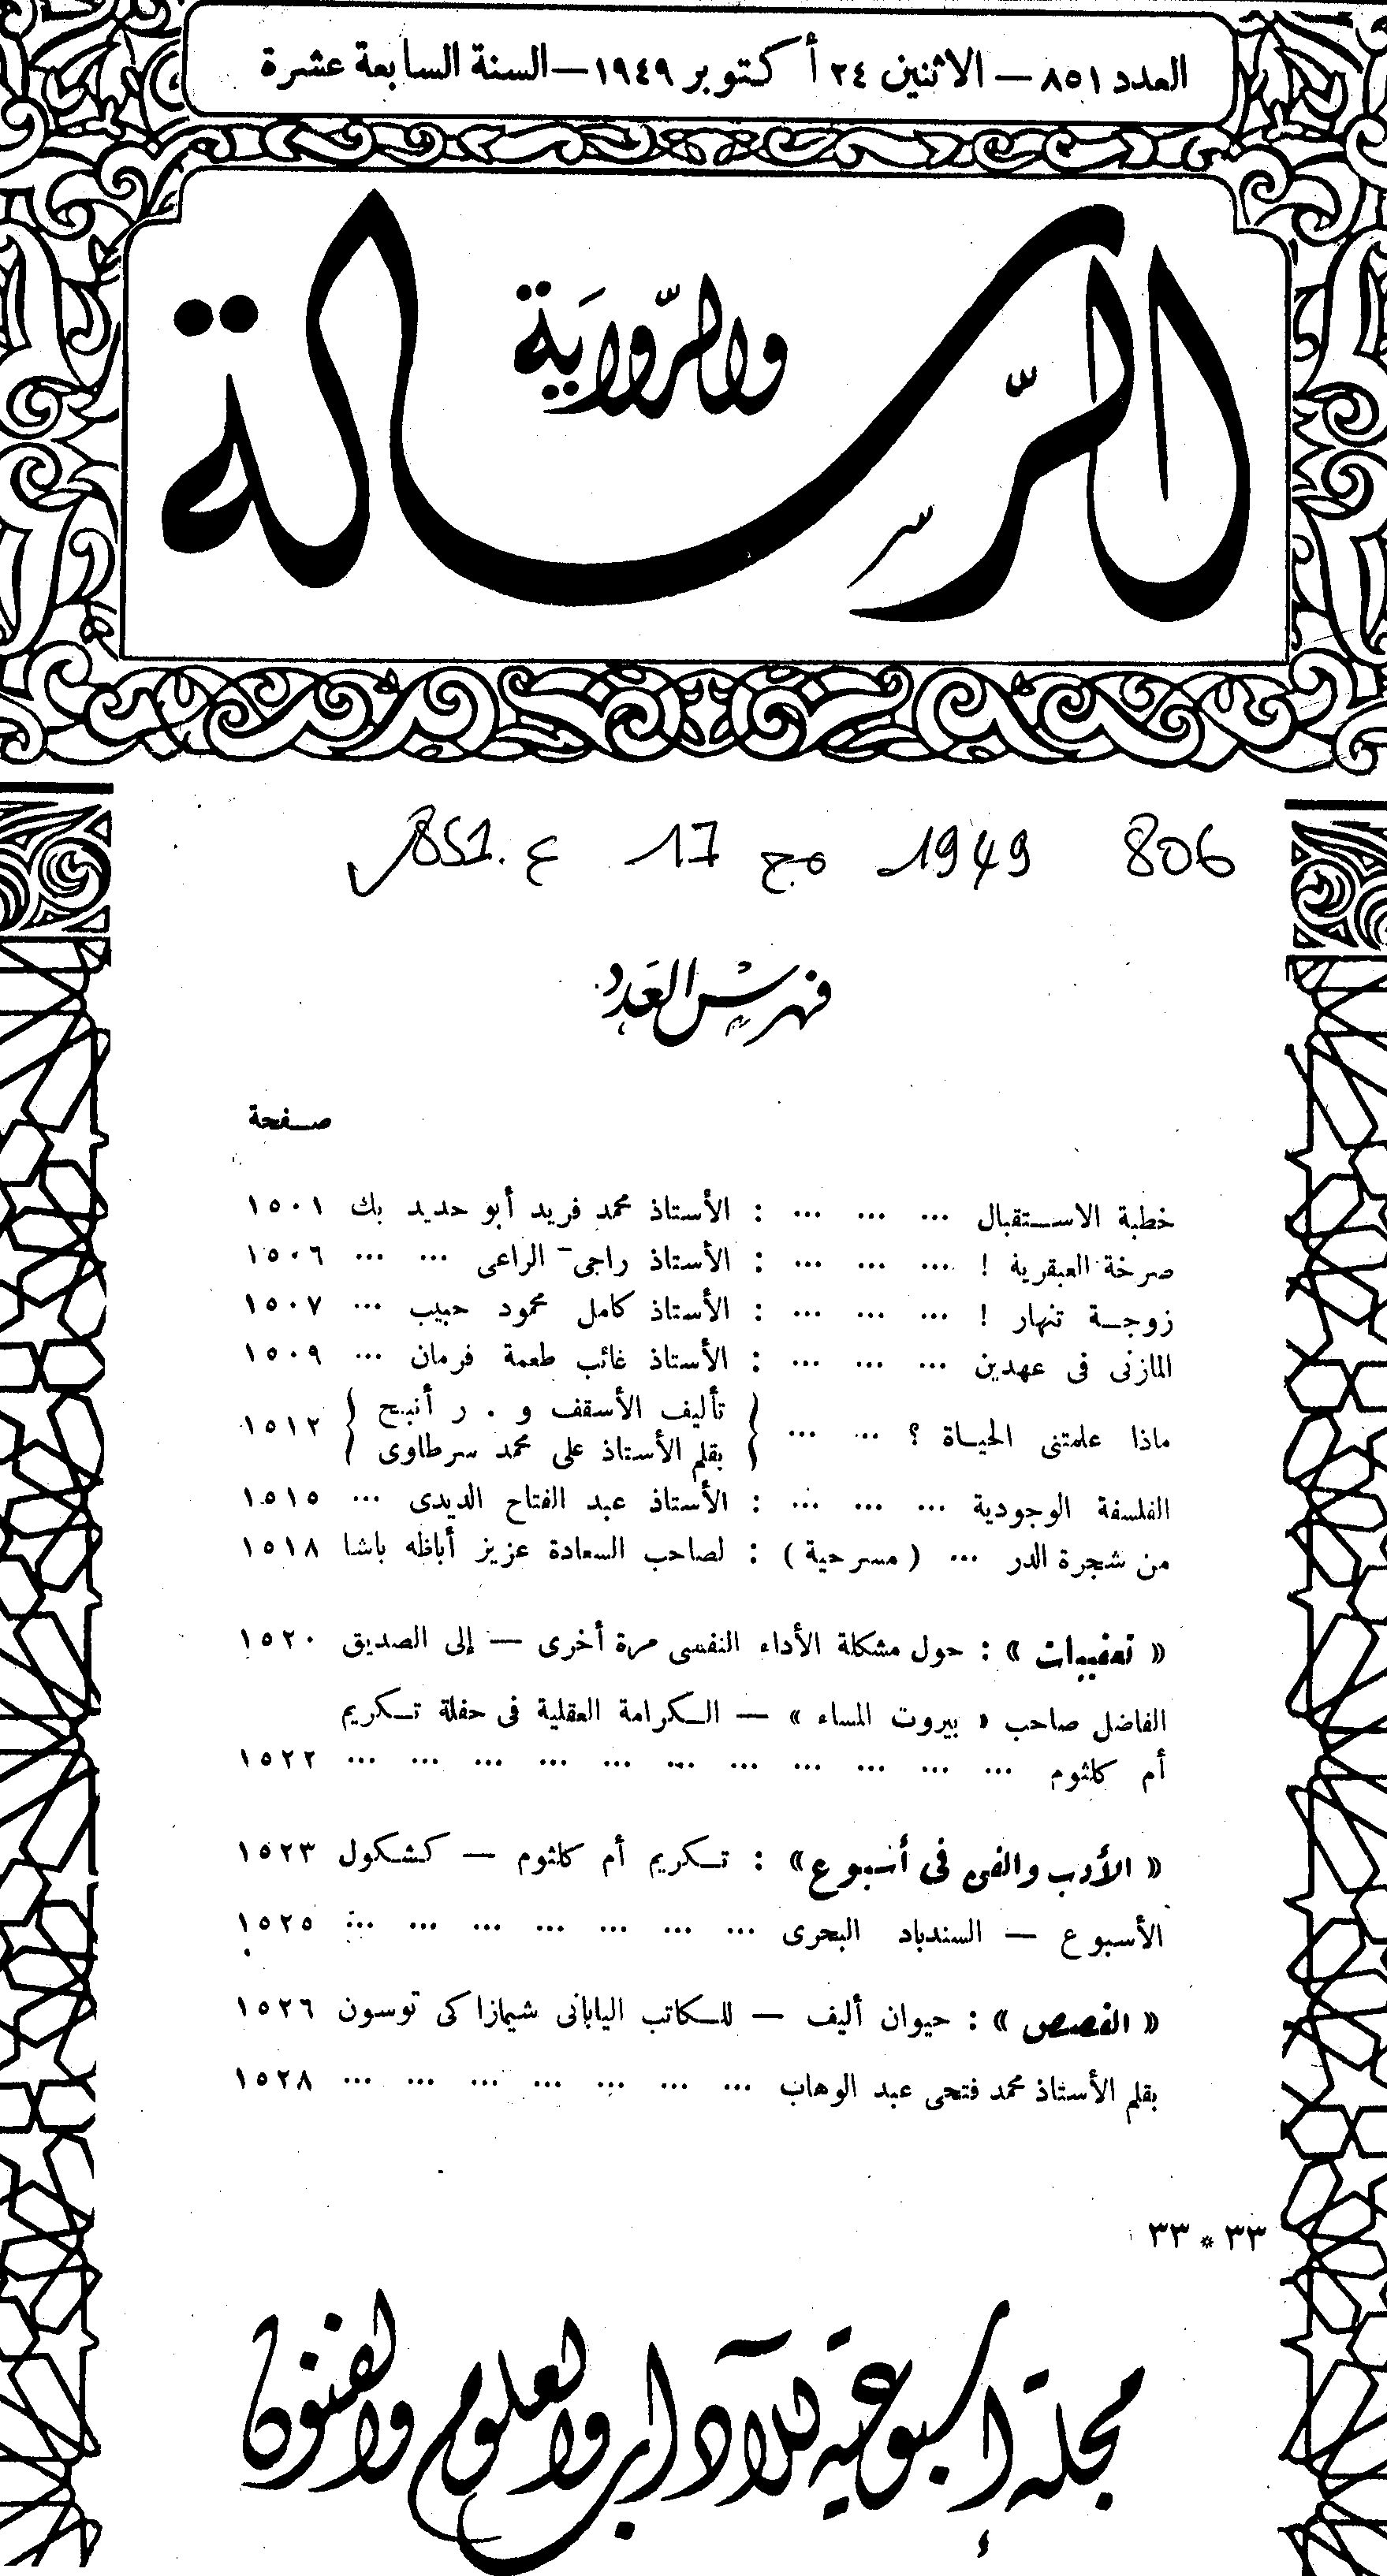 العدد ٨٥١ — الاثنين ٢٤ أكتوبر ١٩٤٩ — السنة السابعة عشرة
الرسالة
والرواية
806 1949 مج 17 ع 851
فهرس العدد
صفحة
خطبة الاستقبال ... ... ... : الأستاذ محمد فريد أبو حديد بك ١٥٠١
صرخة العبقرية ! ... ... ... : الأستاذ راجى الراعى ... ... ١٥٠٦
زوجة تنهار ! ... ... ... : الأستاذ كامل محمود حبيب ... ١٥٠٧
المازنى فى عهدين ... ... ... : الأستاذ غائب طعمة فرمان ... ١٥٠٩
ماذا علمتنى الحياة ؟ ... ... { تأليف الأسقف و . ر أنبج
بقلم الأستاذ على محمد سرطاوى } ١٥١٢
الفلسفة الوجودية ... ... ... : الأستاذ عبد الفتاح الديدى ... ١٥١٥
من شجرة الدر ... ( مسرحية ) : لصاحب السعادة عزيز أباظه باشا ١٥١٨
« تعقيبات » : حول مشكلة الأداء النفسى مرة أخرى — إلى الصديق ١٥٢٠
الفاضل صاحب « بيروت المساء » — الكرامة العقلية فى حفلة تكريم
أم كلثوم ... ... ... ... ... ... ... ... ... ... ... ١٥٢٢
« الأدب والفن فى أسبوع » : تكريم أم كلثوم — كشكول ١٥٢٣
الأسبوع — السندباد البحرى ... ... ... ... ... ... ... ١٥٢٥
« القصص » : حيوان أليف — للكاتب اليابانى شيمازاكى توسون ١٥٢٦
بقلم الأستاذ محمد فتحى عبد الوهاب ... ... ... ... ... ... ... ١٥٢٨
٣٣ * ٣٣
مجلة أسبوعية للآداب والعلوم والفنون